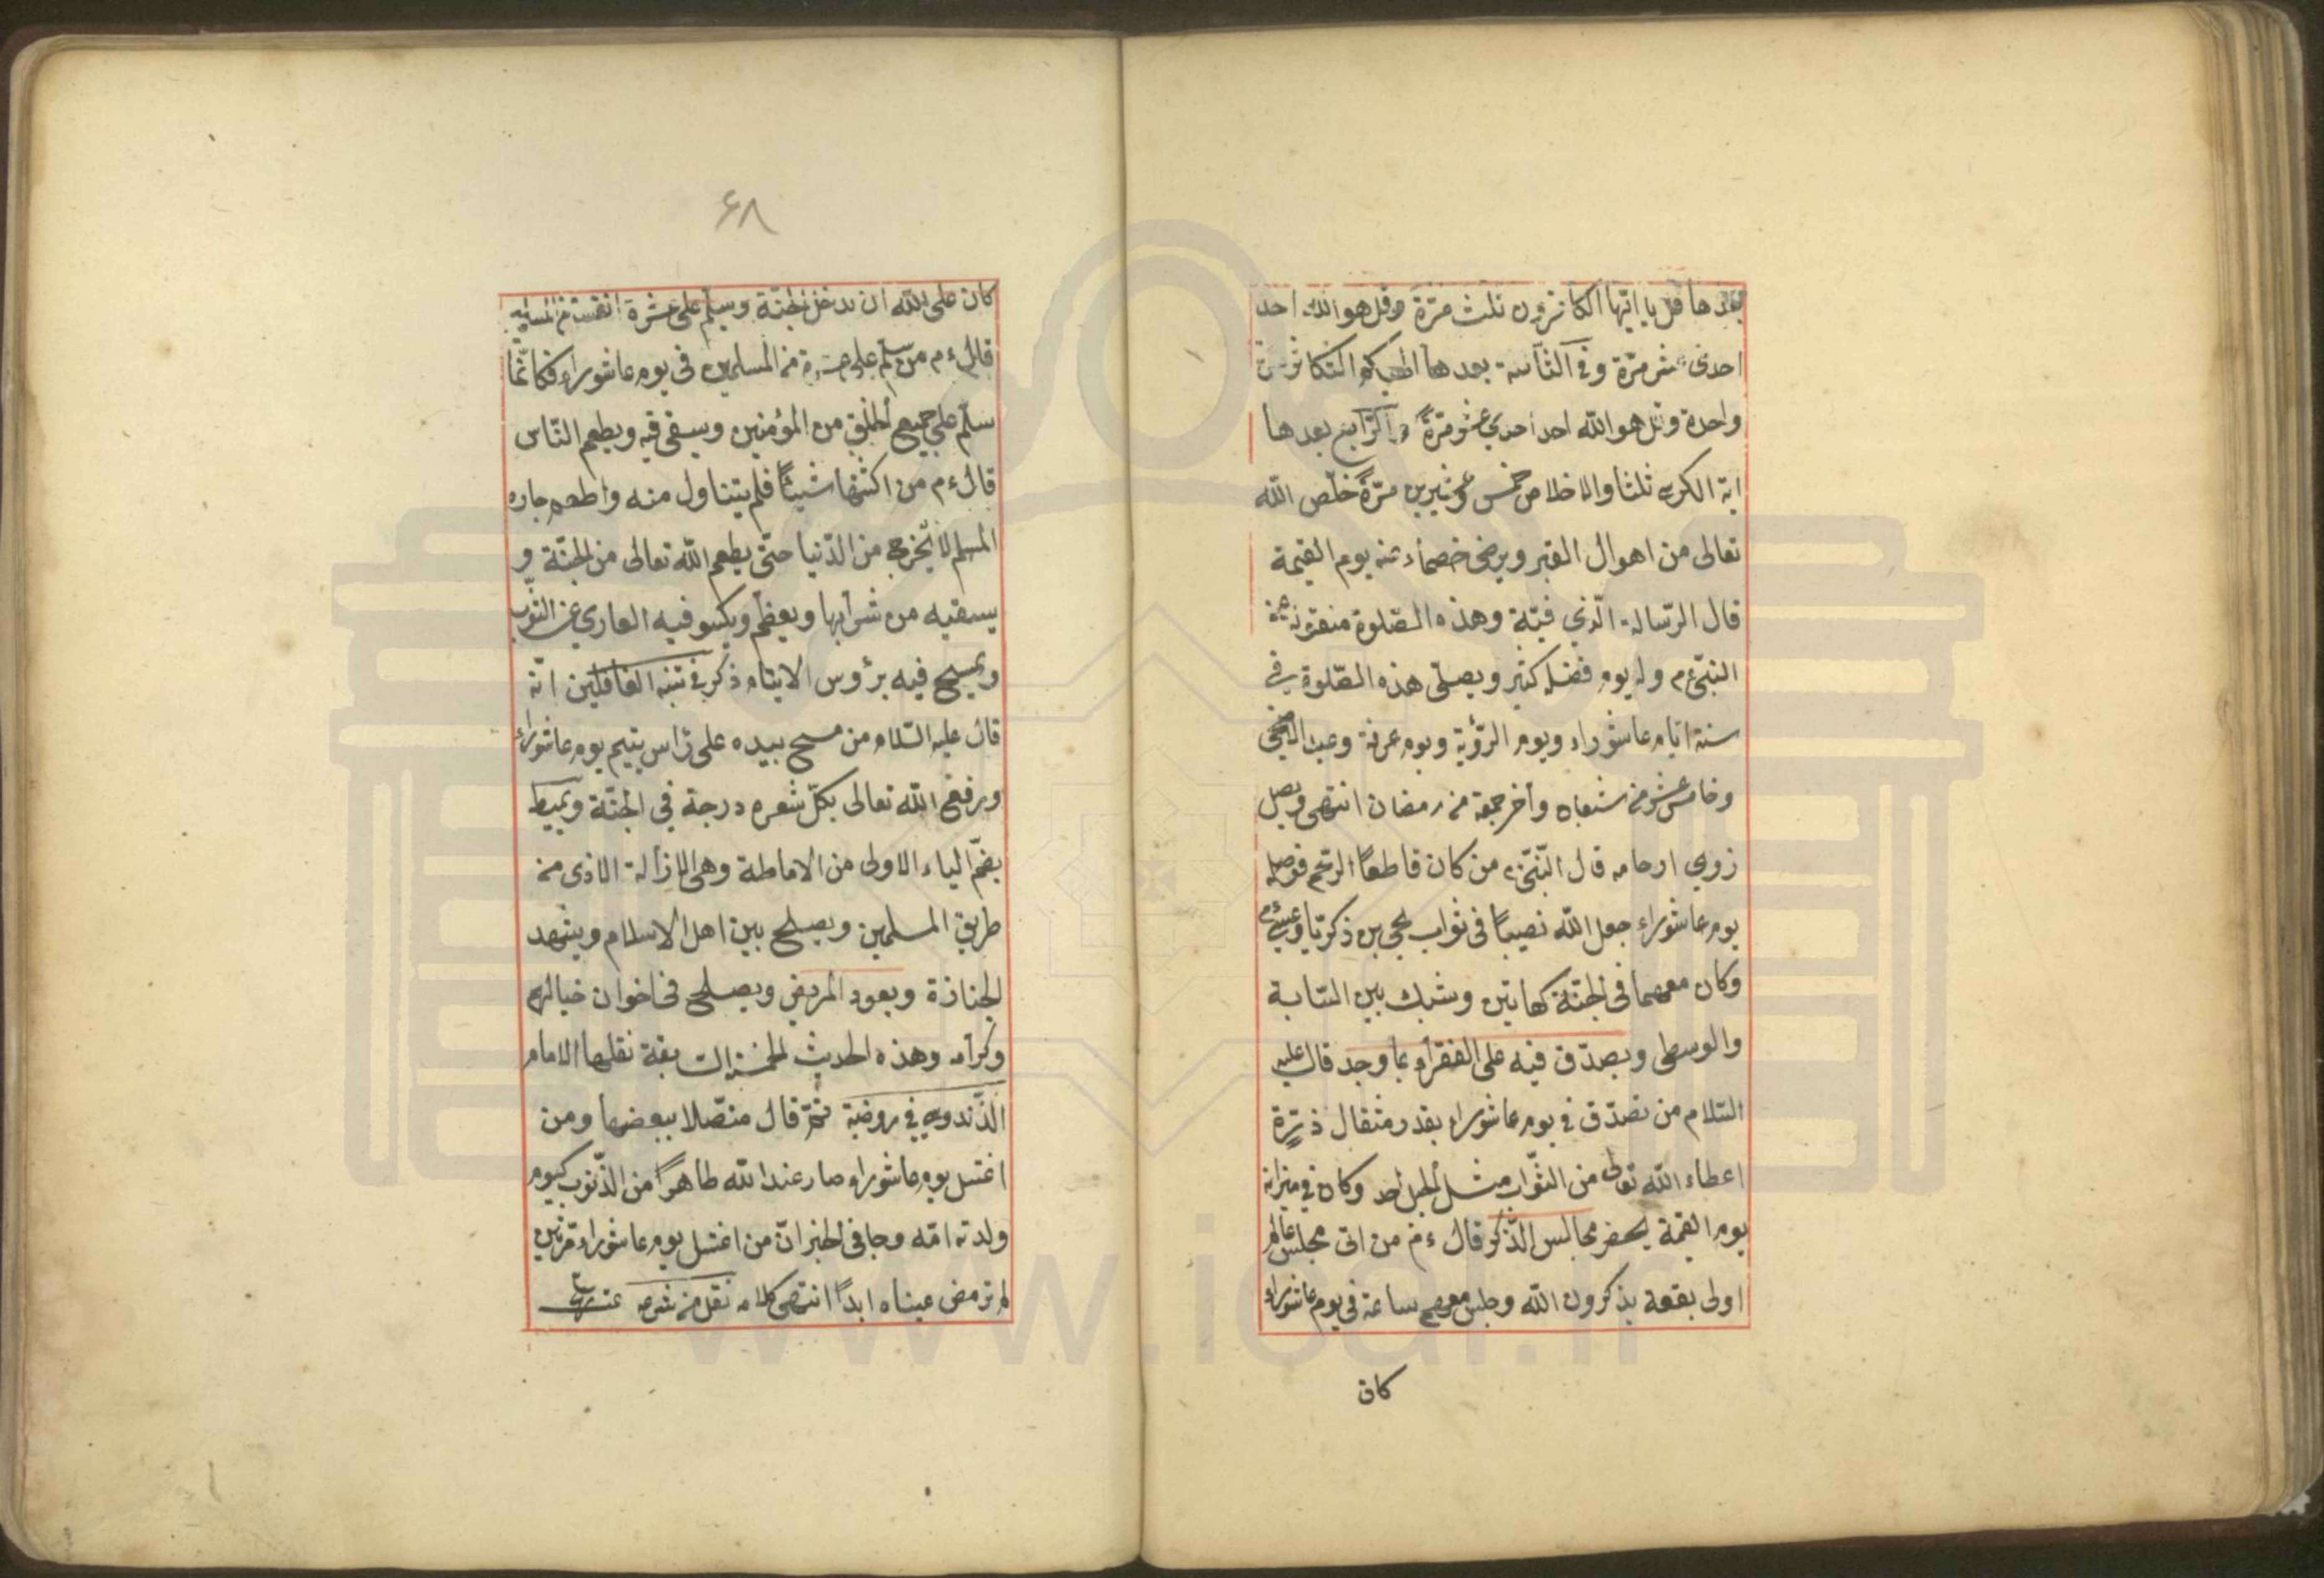 بعدها قل يا ايّها الكافرون ثلث مرّة وقل هو الله احد
احدى عشر مرّة وفي الثالثة بعدها الهيكم التكاثر مرّة
واحدة وقل هو الله احد احدي عشر مرّةً والرّابع بعدها
اية الكرسي ثلثا والاخلاص خمس وعشرين مرّةً خلّص الله
تعالى من اهوال القبر ويرضى خصماءه عنه يوم القيمة
قال الرّسالة الّذي فيّة وهذه الصّلوة منقولة عن
النبيّ ءم وله يوم فضل كثير ويصلّى هذه الصّلوة في
ستة ايّام عاشوراء ويوم الرّؤية ويوم عرفة وعيد الضحى
وخامس عشر من شعبان وآخر جمعة من رمضان انتهى ويصل
زوي ارحامه قال النّبيّ ء من كان قاطعًا الرّحم فوصله
يوم عاشوراء جعل الله نصيبًا في ثواب يحيى بن ذكريّا وعيسى ءم
وكان معهما في الجنّة كهاتين وشبك بين السّبابة
والوسطى ويصدّق فيه على الفقراء بما وجد قال عليه
السّلام من تصدّق في يوم عاشوراء بقدر مثقال ذرّة
اعطاه الله تعالى من الثّواب مثل الجبل احد وكان في ميزانه
يوم القيمة يحضر مجالس الذّكر قال ءم من اتى مجلس عالم
اولى بقعة يذكرون الله وجلس معهم ساعة في يوم عاشوراء
كان
۶۸
كان على الله ان يدخل الجنّة ويسلّم على عشرة انفس من المسلمين
قال ءم من سلّم على عشرة من المسلمين في يوم عاشوراء فكانّما
سلّم على جميع الخلق من المؤمنين ويسقى فيه ويطعم النّاس
قال ءم من اشتها شيئًا فلم يتناول منه واطعم جاره
المسلم لا يخرج من الدّنيا حتّى يطعم الله تعالى من الجنّة و
يسقيه من شرابها ويعظم ويكسو فيه العاري عن الثّوب
ويمسح فيه برؤس الايتام ذكر في تنبه الغافلين انّه
قال عليه السّلام من مسح بيده على رأس يتيم يوم عاشوراء
ويرفع الله تعالى بكلّ شعره درجة في الجنّة ويميط
بضمّ الياء الاولى من الاماطة وهى الازالة الاذى من
طريق المسلمين ويصلح بين اهل الاسلام ويشهد
الجنازة ويعود المريض ويصلح في اخوان خيالهم
وكرامه وهذه الحديث الخمسة السّابقة نقلها الامام
الزّندوسي في روضة ثمّ قال متّصلا ببعضها ومن
اغتسل يوم عاشوراء صار عند الله طاهرًا من الذّنوب كيوم
ولدته امّه وجا في الخبر انّ من اغتسل يوم عاشوراء مرّتين
لم ترمض عيناه ابدًا انتهى كلامه نقل من شرعه